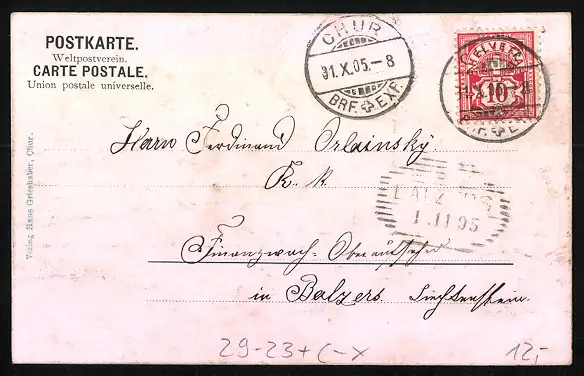 POSTKARTE.
Weltpostverein.
CARTE POSTALE.
Union postale universelle.
CHUR
31.X.05.–8
BRF. EXP.
HELVETIA
10
Herrn Ferdinand Orlainsky
K. k.
BALZERS
1 11 05
Finanzwach-Oberaufseher
in Balzers Liechtenstein.
Verlag Hans Grieshaber, Chur.
29-23+C-X
12,-